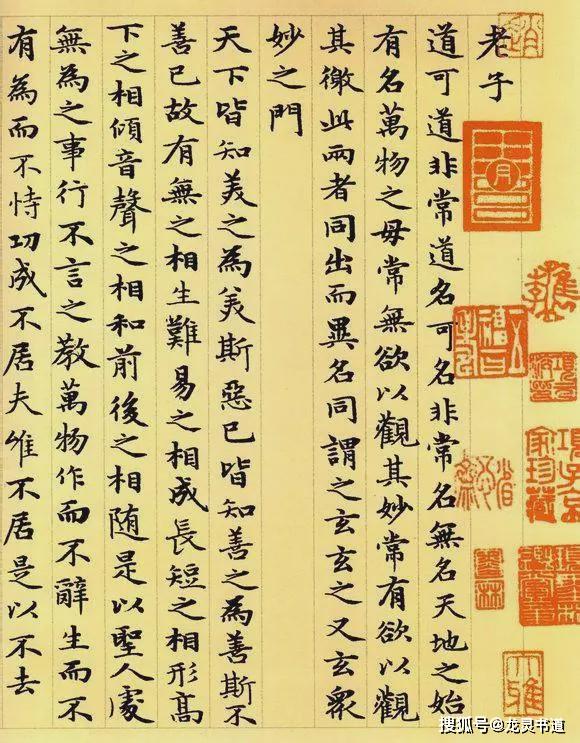 老子
道可道非常道名可名非常名無名天地之始
有名萬物之母常無欲以觀其妙常有欲以觀
其徼此兩者同出而異名同謂之玄玄之又玄眾
妙之門
天下皆知美之為美斯惡已皆知善之為善斯不
善已故有無之相生難易之相成長短之相形高
下之相傾音聲之相和前後之相随是以聖人處
無為之事行不言之教萬物作而不辭生而不
有為而不恃功成不居夫唯不居是以不去
項子京家珍藏
搜狐号@龙灵书道